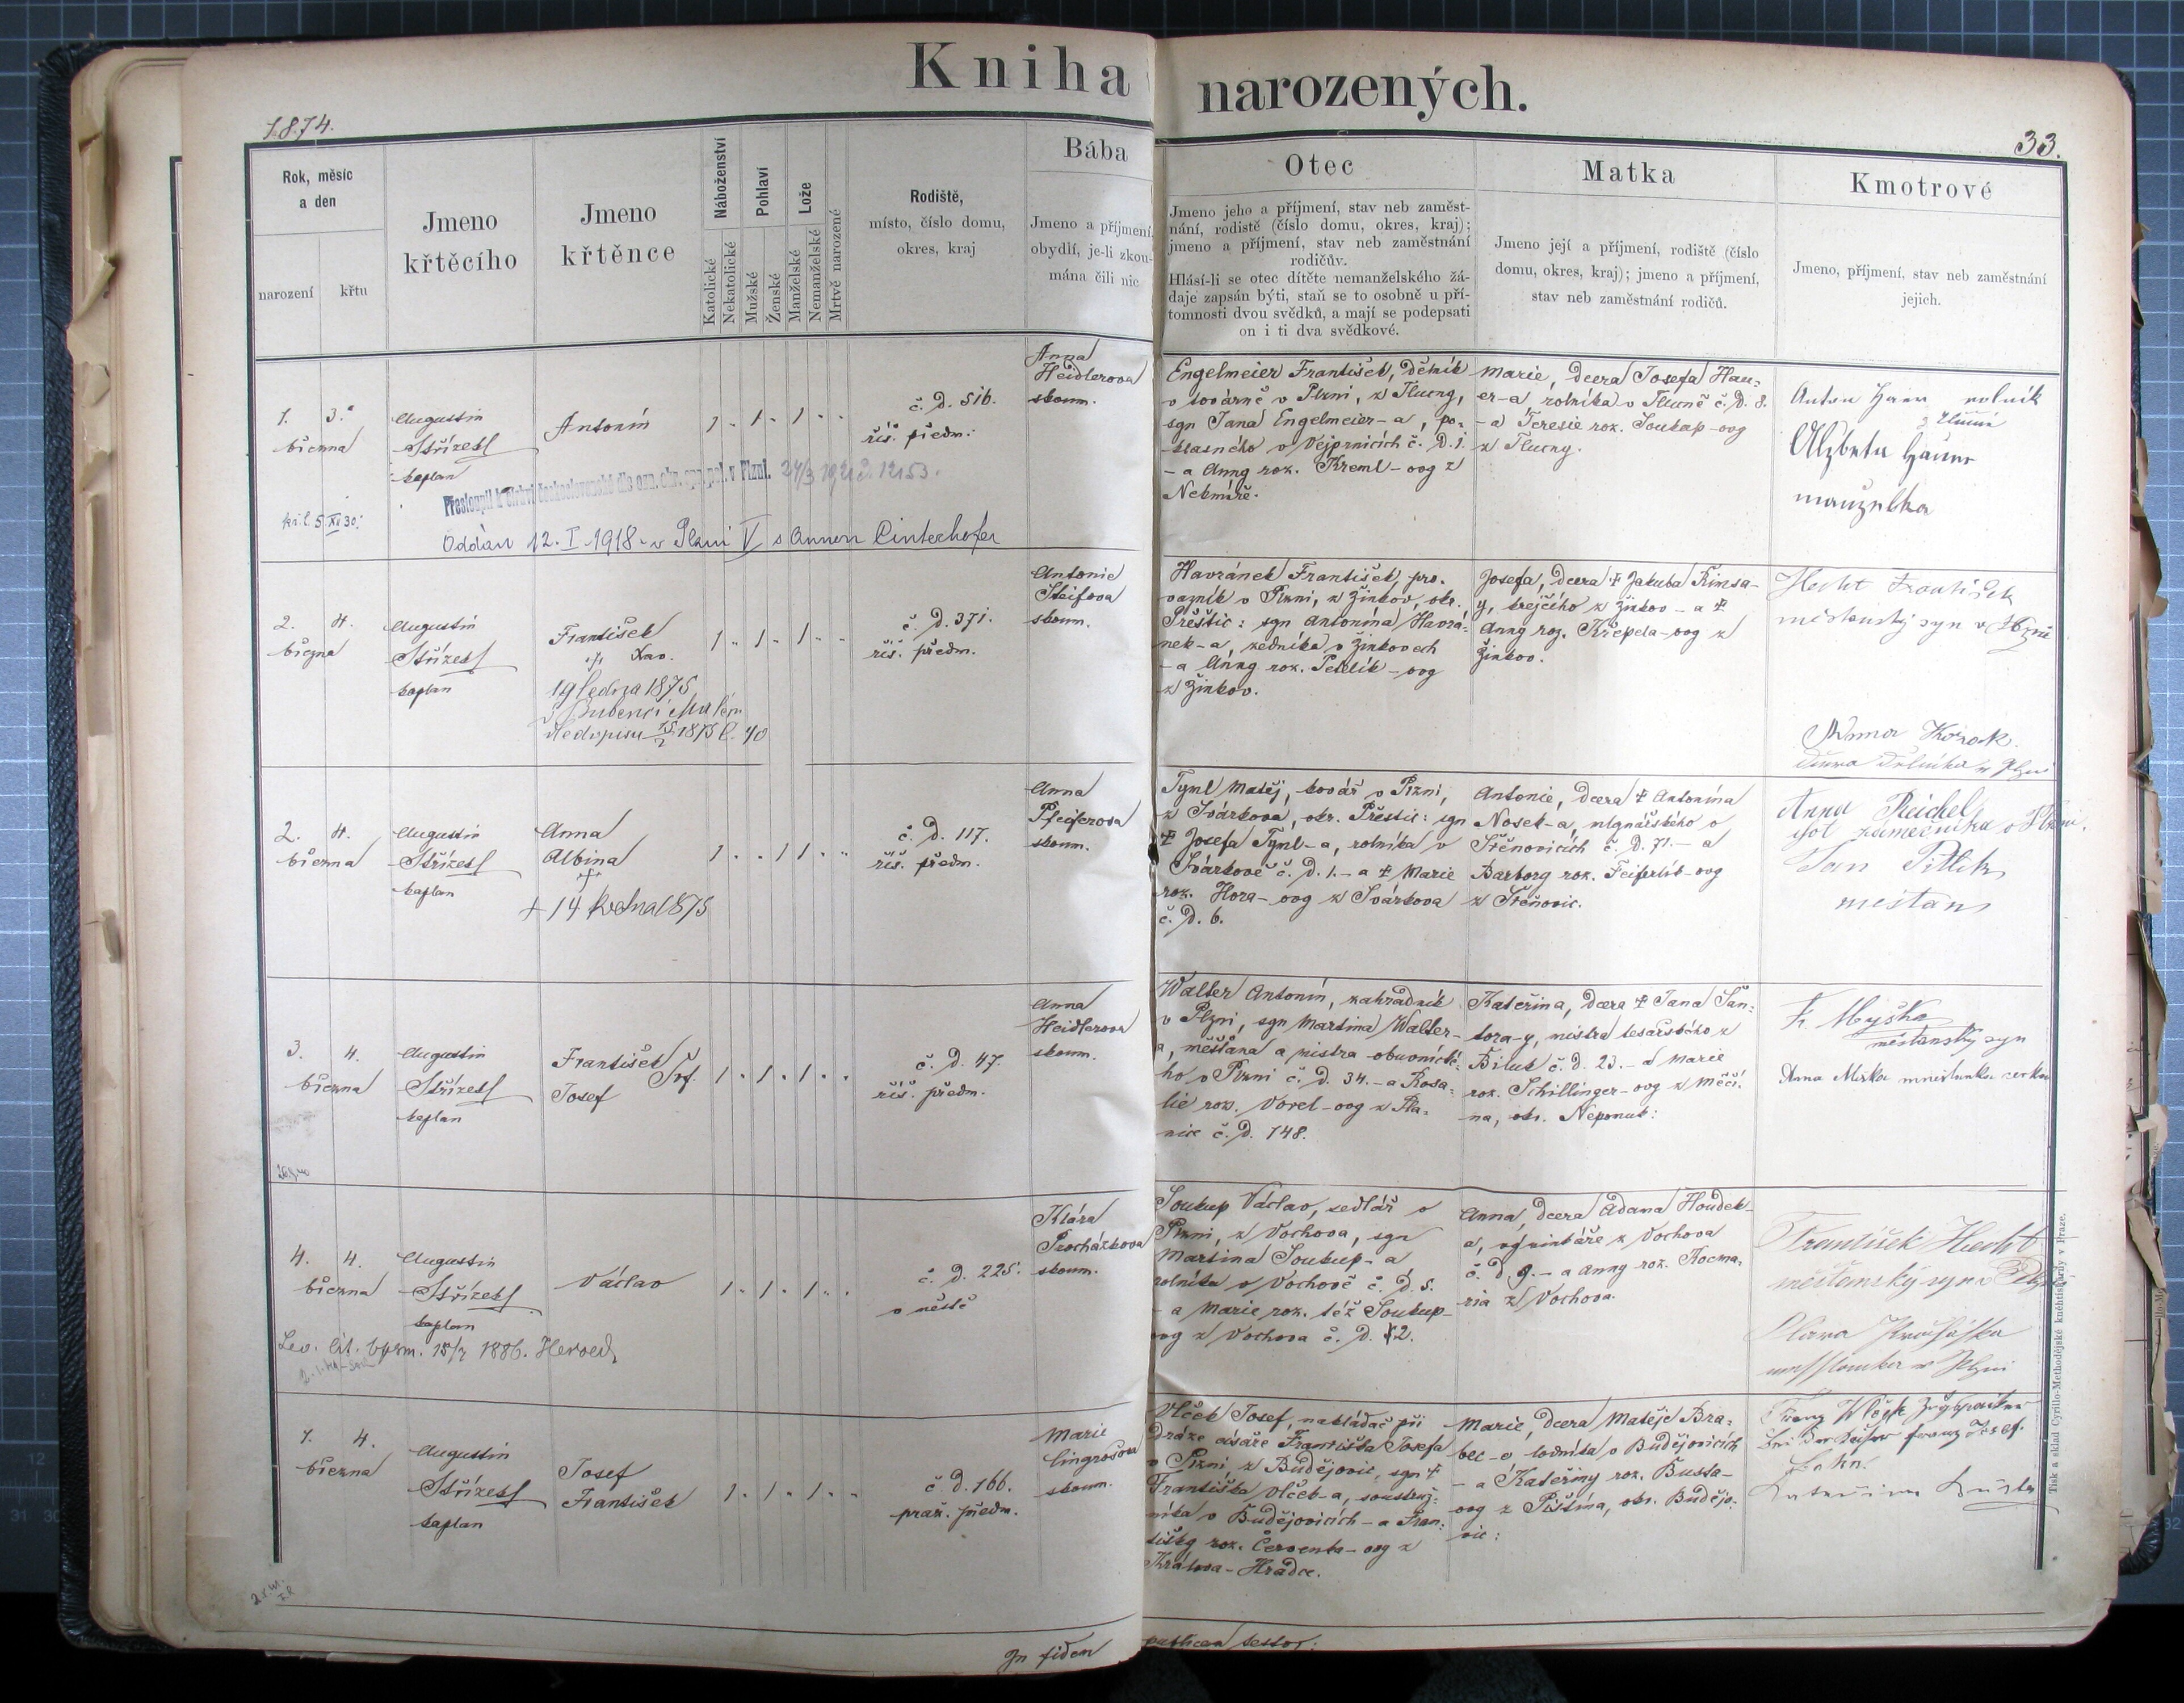 Kniha narozených.
1874.
33.
Rok, měsíc
a den
narození
křtu
Jmeno
křtěcího
Jmeno
křtěnce
Náboženství
Katolické
Nekatolické
Pohlaví
Mužské
Ženské
Lože
Manželské
Nemanželské
Mrtvě narozené
Rodiště,
místo, číslo domu,
okres, kraj
Bába
Jmeno a příjmení,
obydlí, je-li zkou-
mána čili nic
Otec
Jmeno jeho a příjmení, stav neb zaměst-
nání, rodistě (číslo domu, okres, kraj);
jmeno a příjmení, stav neb zaměstnání
rodičův.
Hlásí-li se otec dítěte nemanželského žá-
daje zapsán býti, staň se to osobně u pří-
tomnosti dvou svědků, a mají se podepsati
on i ti dva svědkové.
Matka
Jmeno její a příjmení, rodiště (číslo
domu, okres, kraj); jmeno a příjmení,
stav neb zaměstnání rodičů.
Kmotrové
Jmeno, příjmení, stav neb zaměstnání
jejich.
1. 3.
března
Augustin
Střízess
kaplan
Antonín
1 . 1 . 1 . .
č. D. 516.
říš. předm.
Anna
Heidlerova
skoum.
Engelmeier František, dělník
v továrně v Plzni, z Tlucny,
syn Jana Engelmeier-a, po-
klasného v Vejprnicích č. D. 1.
- a Anny roz. Kreml-ovy z
Nekmíře.
Marie, dcera Josefa Hau-
er-a rolníka v Tlucně č. D. 8.
- a Teresie roz. Soukup-ovy
z Tlucny.
Anton Hauer rolník
Alžbeta Hauer
manželka
Přestoupil k církvi československé dle ozn. okr. spr. pol. v Plzni. 24/3 1921
Oddán 12. I. 1918 v Plzni V s Annou Cinterhofer
2. 4.
března
Augustin
Střízess
kaplan
František
Xav.
19 ledna 1875
v Bubenci
1 . 1 . 1 . .
č. D. 371.
říš. předm.
Antonie
Steifova
skoum.
Havránek František, pro-
vazník v Plzni, z Žinkov, okr.
Přeštic: syn Antonína Havrá-
nek-a, zedníka v Žinkovech
- a Anny roz. Petelík-ovy
z Žinkov.
Josefa, dcera † Jakuba Rimsa-
y, krejčího z Žinkov - a †
Anny roz. Křepela-ovy z
Žinkov.
Hecht František
městanský syn v Plzni
Anna Kozak
2. 4.
března
Augustin
Střízess
kaplan
Anna
Albina
†
+ 14 května 1875
1 . . 1 1 . .
č. D. 117.
říš. předm.
Anna
Pfeiferova
skoum.
Tyml Matěj, kovář v Plzni,
z Svárkova, okr. Přeštic: syn
† Josefa Tyml-a, rolníka v
Svárkově č. D. 1. - a † Marie
roz. Hora-ovy z Svárkova
č. D. 6.
Antonie, dcera † Antonína
Nosek-a, mlynářského v
Štěnovicích č. D. 71. - a
Barbory roz. Feiferlík-ovy
z Štěnovic.
Anna Reichel
chol zámečníka v Plzni.
Jan Pittik
mestan
3. 4.
března
Augustin
Střízess
kaplan
František
Josef
1 . 1 . 1 . .
č. D. 47.
říš. předm.
Anna
Heidlerova
skoum.
Walter Antonín, zahradník
v Plzni, syn Martina Walter-
a, měšťana a mistra obuvnické-
ho v Plzni č. D. 34. - a Rosa-
lie roz. Vorel-ovy z Pla-
nice č. D. 148.
Kateřina, dcera † Jana Šan-
tora-y, mistra tesařského z
Biluk č. D. 23. - a Marie
roz. Schillinger-ovy z Měčí-
na, okr. Nepomuk:
Fr. Myška
městanský syn
4. 4.
března
Augustin
Střízess
kaplan
Václav
1 . 1 . 1 . .
č. D. 225.
v městě
Klára
Procházkova
skoum.
Soukup Václav, sedlář v
Plzni, z Vochova, syn
Martina Soukup-a
rolníka v Vochově č. D. 5.
- a Marie roz. též Soukup-
ovy z Vochova č. D. 12.
Anna, dcera Adama Houdek-
a, výminkáře z Vochova
č. D. 9. - a Anny roz. Kocma-
ria z Vochova.
František Hecht
městanský syn v Plzni
1. 4.
března
Augustin
Střízess
kaplan
Josef
František
1 . 1 . 1 . .
č. D. 166.
praž. předm.
Marie
Lingrošova
skoum.
Vlček Josef, nakládač při
dráze císaře Františka Josefa
v Plzni, z Budějovic, syn †
Františka Vlček-a, soustruž-
níka v Budějovicích - a Fran-
tišky roz. Červenka-ovy z
Králova-Hradce.
Marie, dcera Matěje Bra-
bec-e lodníka v Budějovicích
- a Kateřiny roz. Bussa-
ovy z Pištína, okr. Budějo-
vic:
In fidem
Tisk a sklad Cyrillo-Methodějské kněhtiskárny v Praze.